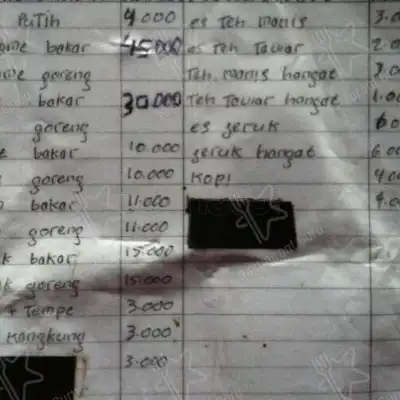 putih 4.000 es Teh manis 3.0
bakar 45000 es Teh Tawar 2.0
goreng Teh manis hangat 3.0
bakar 30000 Teh Tawar hangat 1.00
goreng es jeruk 6.0
bakar 10.000 jeruk hangat 6.00
goreng 10.000 kopi 4.00
bakar 11.000 4.00
goreng 11.000
k bakar 15.000
k goreng 15.000
+ Tempe 3.000
kangkung 3.000
3.000